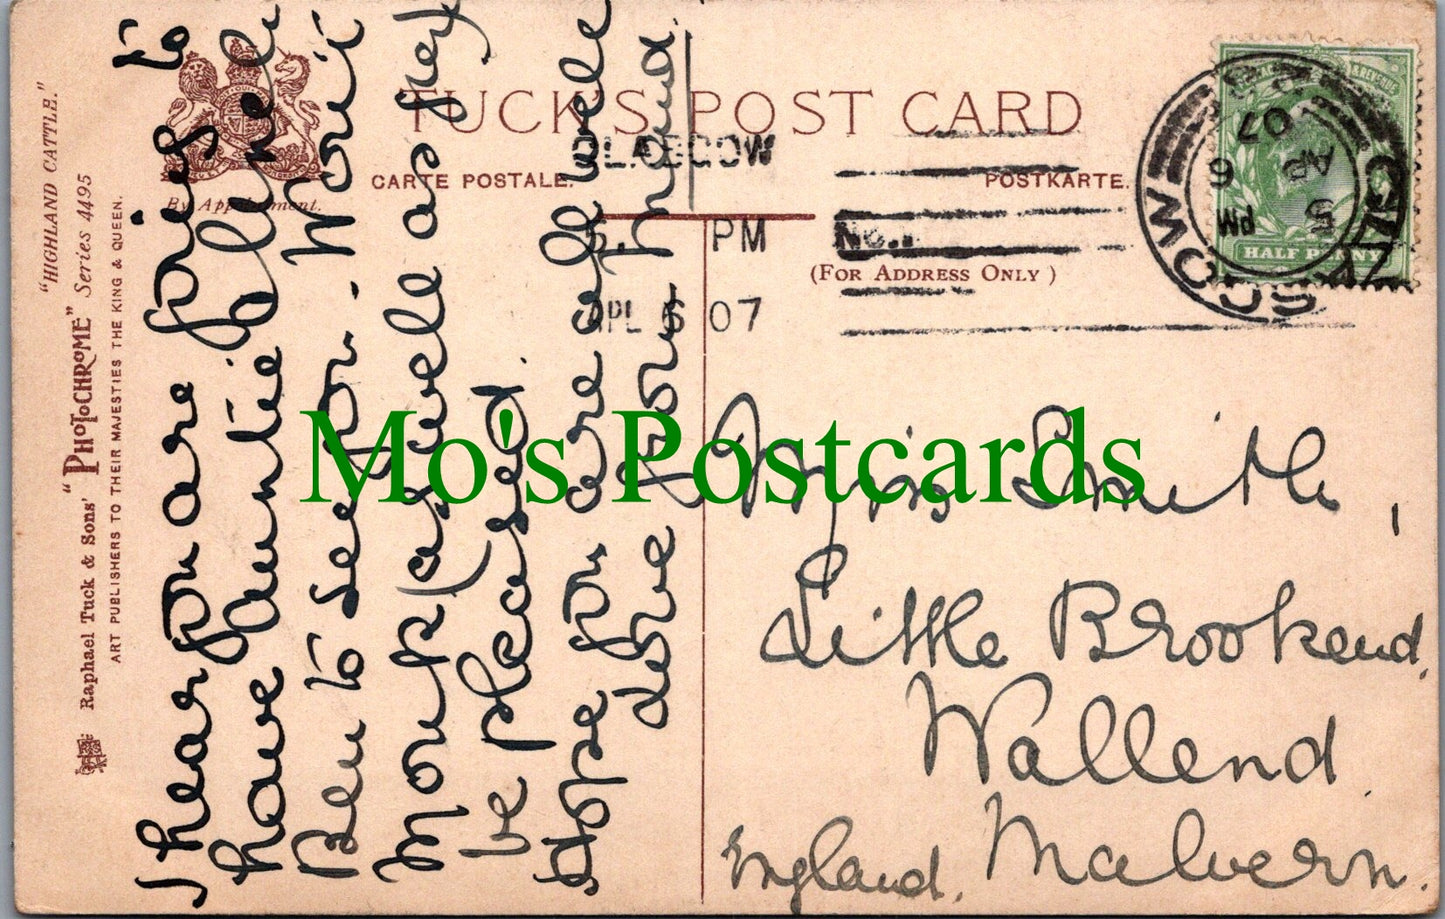 "HIGHLAND CATTLE."
Raphael Tuck & Sons' "PHOTOCHROME" Series 4495
ART PUBLISHERS TO THEIR MAJESTIES THE KING & QUEEN.
By Appointment.
TUCK'S POST CARD
CARTE POSTALE.
POSTKARTE.
(FOR ADDRESS ONLY)
GLASGOW
5 PM
APL 5 07
No.
GLASGOW
6 PM
AP 5
07
HALF PENNY
I hear you are going to
have Auntie
Ben to see you. Won't
Mary be
be pleased.
Hope you are all well
love from
Mo's Postcards
Miss Smith,
Little Brookend,
Wallend
Malvern.
England.